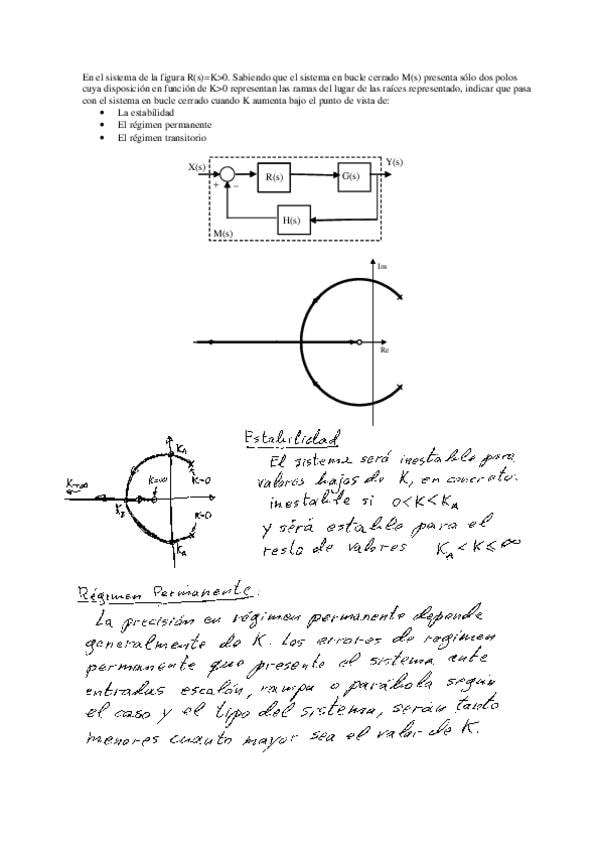 En el sistema de la figura R(s)=K>0. Sabiendo que el sistema en bucle cerrado M(s) presenta sólo dos polos
cuya disposición en función de K>0 representan las ramas del lugar de las raíces representado, indicar que pasa
con el sistema en bucle cerrado cuando K aumenta bajo el punto de vista de:
• La estabilidad
• El régimen permanente
• El régimen transitorio
X(s)
Y(s)
R(s)
G(s)
+
−
H(s)
M(s)
Im
Re
Estabilidad
El sistema será inestable para
valores bajos de K, en concreto:
inestable si 0<K<KA
y será estable para el
resto de valores KA<K≤∞
KA
K=0
K=∞
K→∞
K=0
KA
Régimen Permanente:
La precisión en régimen permanente depende
generalmente de K. Los errores de regimen
permanente que presente el sistema ante
entradas escalón, rampa o parábola según
el caso y el tipo del sistema, serán tanto
menores cuanto mayor sea el valor de K.